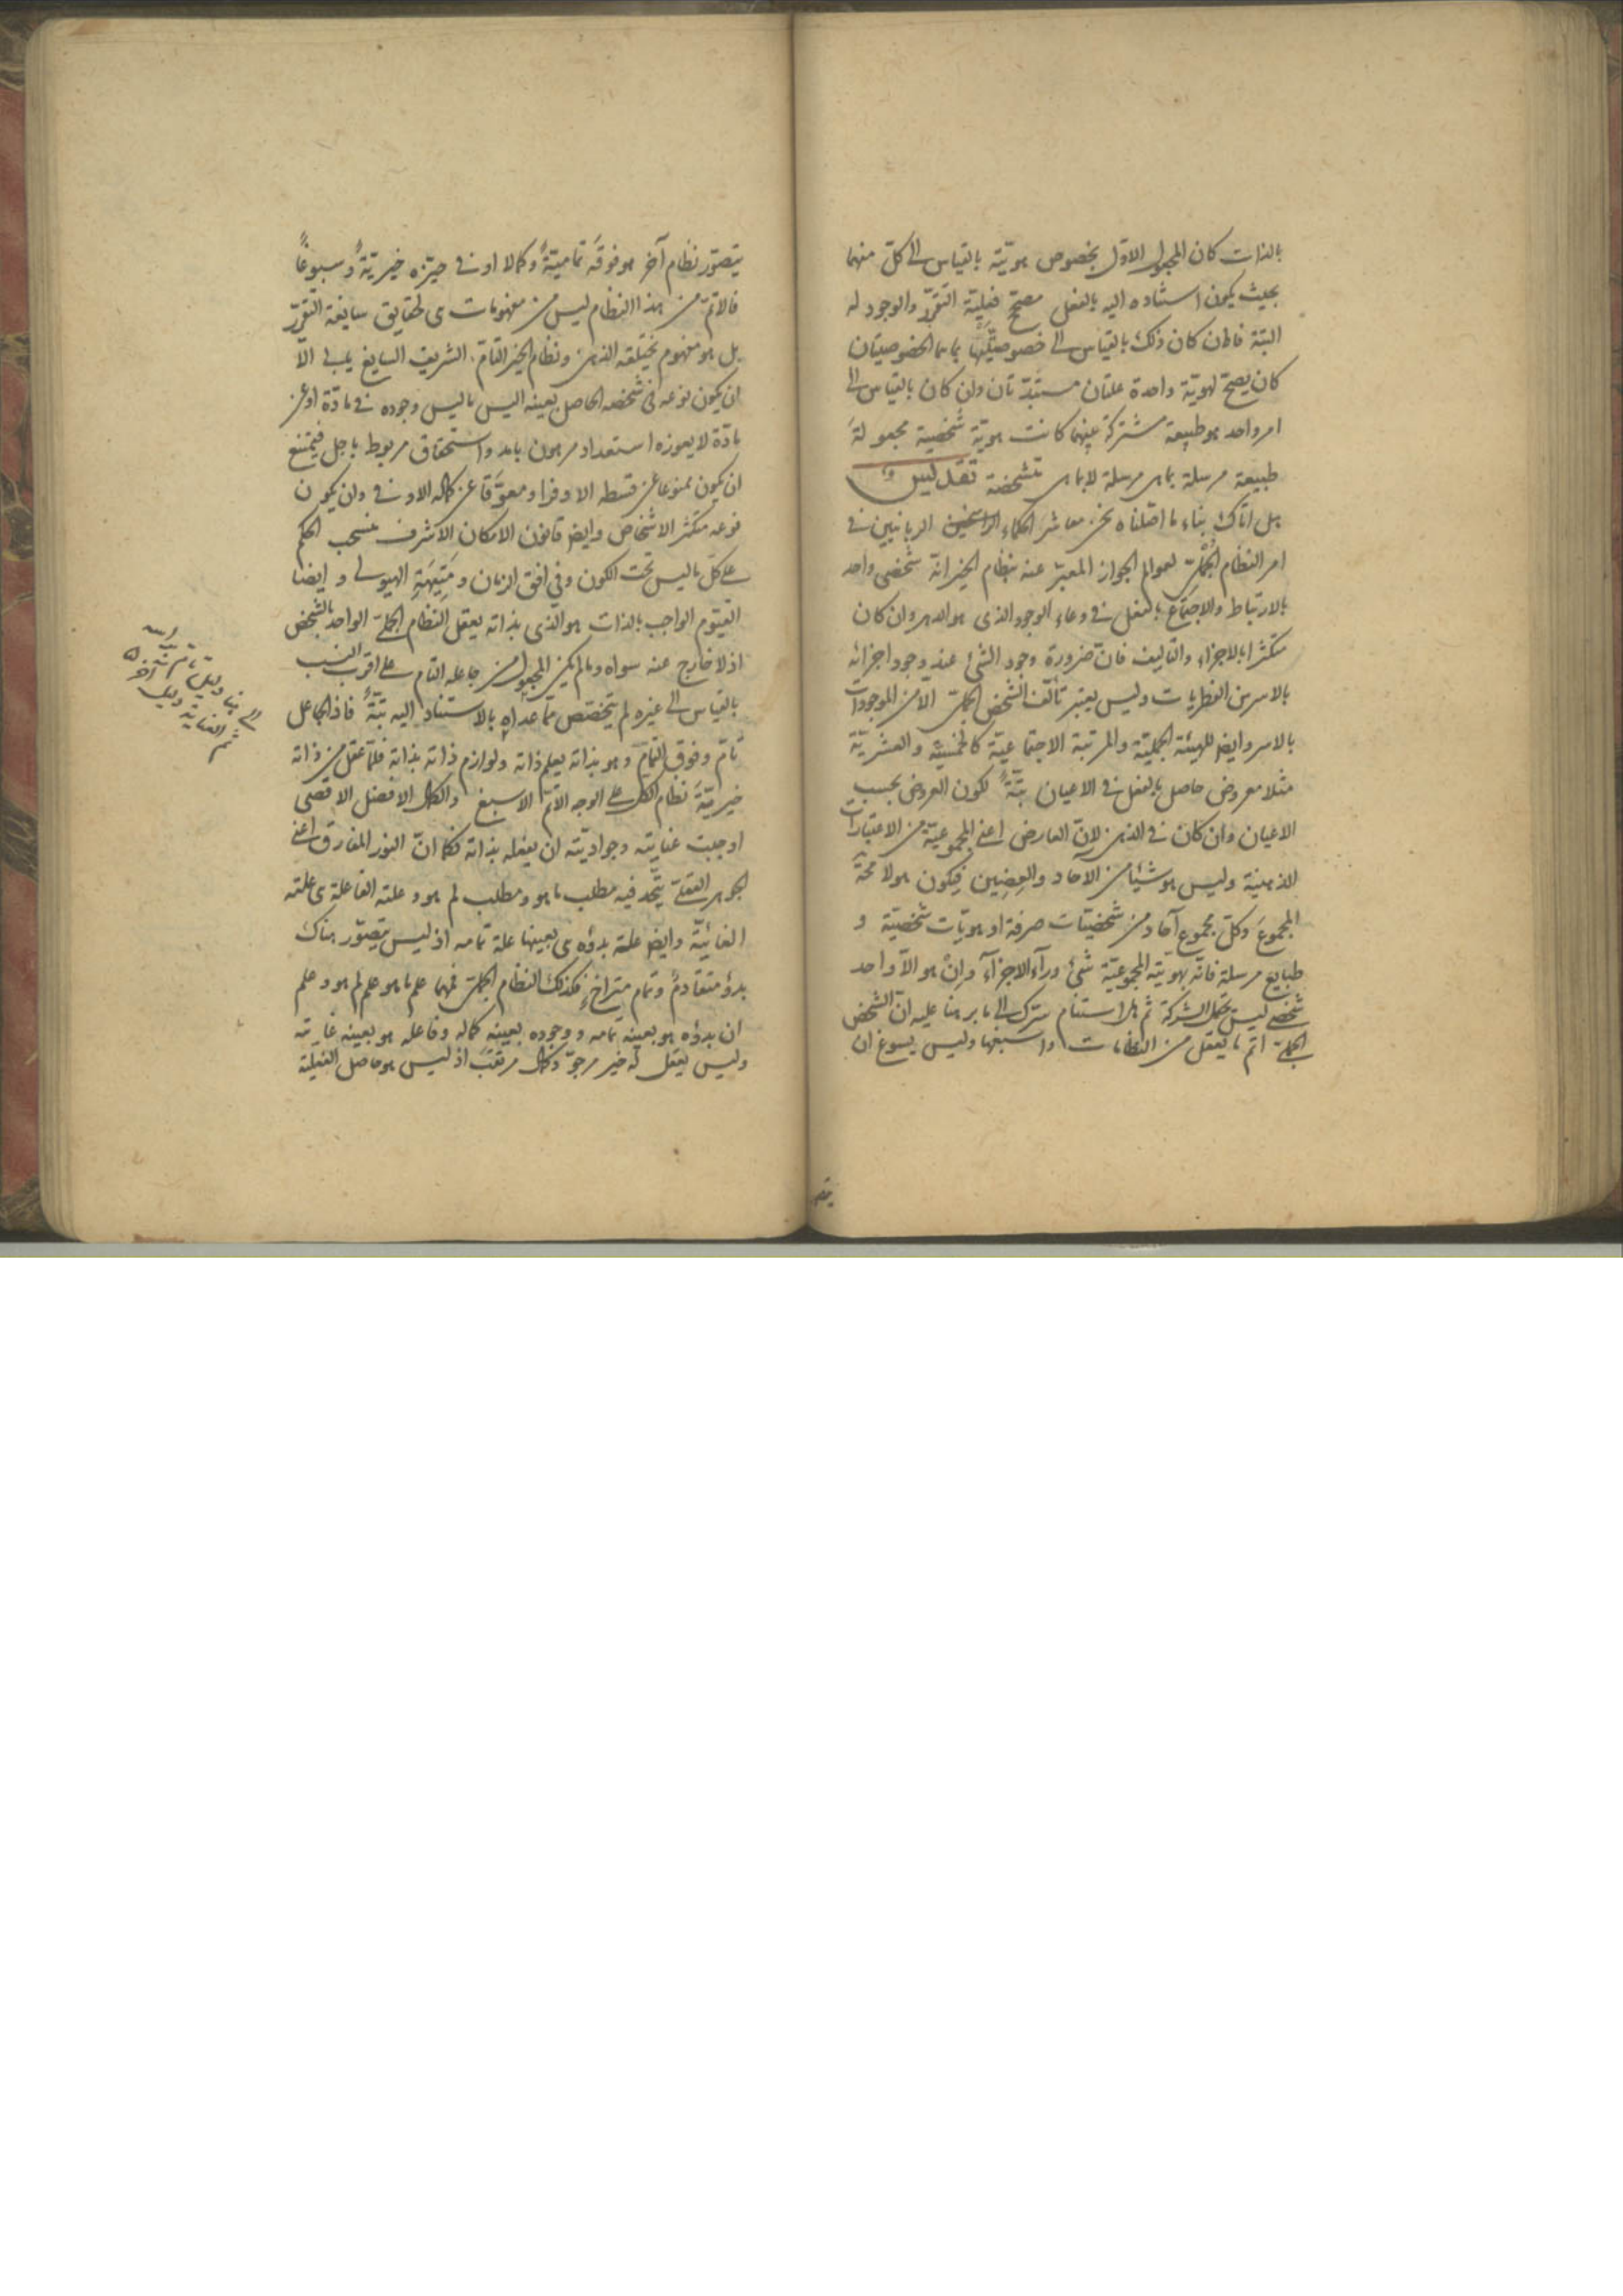 بالذات كان المجعول الاول بخصوص هويّته بالقياس الى كلّ منهما
بحيث يكون استناده اليه بالفعل مصحّح فعليّة التقرّر والوجود له
البتة فاذن كان ذلك بالقياس الى خصوصيّتيهما بما هما الخصوصيتان
كان يصحّ لهويّة واحدة علتان مستبدّتان وان كان بالقياس الى
امر واحد هو طبيعة مشتركة بينهما كانت هويّة شخصية مجعولة
طبيعة مرسلة بما هى مرسلة لا بما هى متشخصة تعديل ليس
بل انّك بناء ما اصّلناه نحن معاشر الحكماء الراسخين الربانيين فى
امر النظام الجملىّ لعوالم الجواز المعبّر عنه بنظام الخير انّه شخصى واحد
بالارتباط والاجتماع بالفعل فى وعاء الوجود الذى هو الدهر وان كان
متكثرا بالاجزاء والتاليف فانّ ضرورة وجود الشئ عند وجود اجزائه
بالاسر من الفطريات وليس يعتبر تألّف الشخص الجملىّ الّا من الموجودات
بالاسر وايضا للهيئة الجمليّة والمرتبة الاجتماعيّة كالخمسيّة والعشريّة
مثلا معروض حاصل بالفعل فى الاعيان بتّةً لكون العروض بحسب
الاعيان وان كان فى الذهن لانّ العارض اعنى المجموعيّة من الاعتبارات
الذهنية وليس هو شيئا من الآحاد والعِضين فيكون هو لا محة
المجموع وكلّ مجموع آحاد من شخصيّات صرفة او هويّات شخصيّة و
طبايع مرسلة فانّه بهويّته المجموعيّة شئ ورآء الاجزآء وان هو الّا واحد
شخصى ليس يحتمل الشركة ثم هل استنام سرّك الى ما برهنا عليه انّ الشخص
الجملىّ اتم ما يعقل من النظامات واسبغها وليس يسوغ ان
يتصوّر نظام آخر هو فوقَه تماميّةً وكمالا او فى حيّزه خيريّةً وسبوغاً
فالاتمّ من هذا النظام ليس من مفهومات هى لحقايق سايغة التقرّر
بل هو مفهوم يختلقه الذهن ونظام الخير التامّ الشريف السابغ يابى الّا
ان يكون نوعه فى شخصه الحاصل بعينه اليس ما ليس وجوده فى مادّة او عن
مادّة لا يعوزه استعداد مرهون بامد واستحقاق مربوط باجل فيمتنع
ان يكون ممنوعا عن قسطه الاوفر او معوّقا عن كماله الاوفى وان يكون
نوعه متكثر الاشخاص وايضا قانون الامكان الاشرف منسحب الحكم
على كلّ ما ليس تحت الكون وفي افق الزمان ومَتِيهَةِ الهيولى وايضا
القيّوم الواجب بالذات هو الذى بذاته يعقل النظام الجملىّ الواحد بالشخص
اذ لا خارج عنه سواه وما لم يكن المجعول من جاعله التام على اقرب النسب
بالقياس الى غيره لم يتخصّص عمّا عداه بالاستناد اليه بتّةً فاذ الجاعل
تامّ وفوق التمام وهو بذاته يعلم ذاته ولوازم ذاته بذاته فلمّا عقل من ذاته
خيريّةَ نظام الكل على الوجه الاتمّ الاسبغ والكمال الافضل الاقصى
اوجبت عنايته وجواديّته ان يفعله بذاته فكما انّ النور المفارق اعنى
الجوهر العقلىّ يتّحد فيه مطلب ما هو ومطلب لم هو وعلته الفاعلة هى علته
الغائيّة وايضا علة بدؤه هى بعينها علة تمامه اذ ليس يتصوّر هناك
بدؤ متقادم وتمام متراخٍ فكذلك النظام الجملىّ فيهما علم ما هو علم لم هو وعلم
ان بدؤه هو بعينه تمامه ووجوده بعينه كماله وفاعله هو بعينه غايته
وليس يعقل له خير مرجوّ وكمال مرتقب اذ ليس هو حاصل الفعليّة